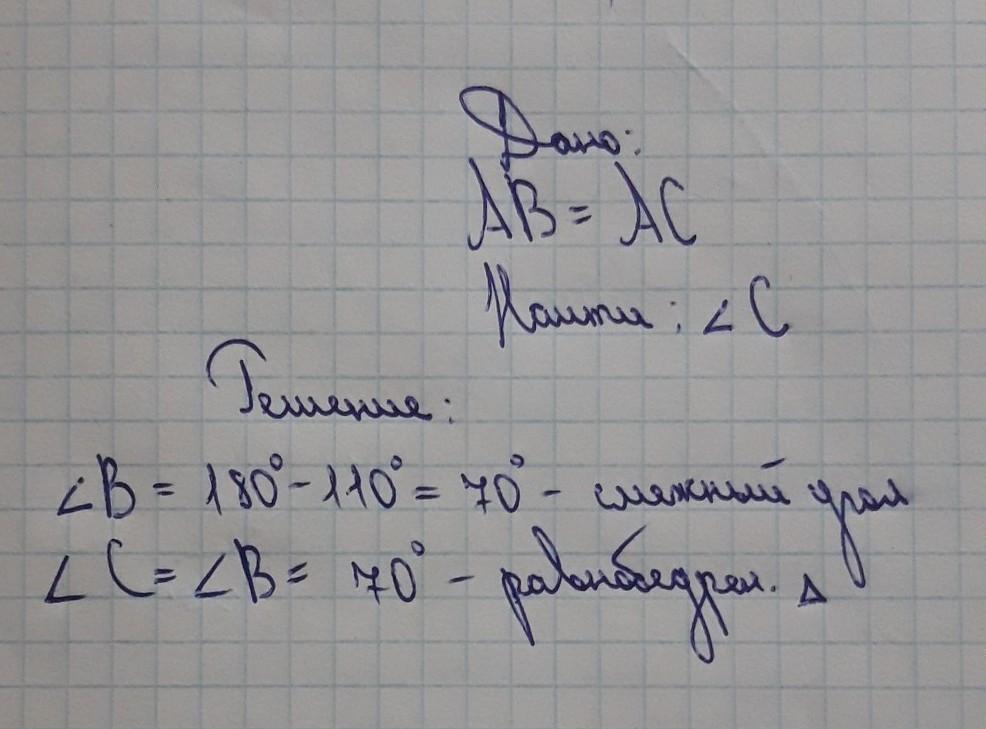 Дано:
AB = AC
Найти: ∠C
Решение:
∠B = 180° - 110° = 70° - смежный угол
∠C = ∠B = 70° - равнобедрен. Δ